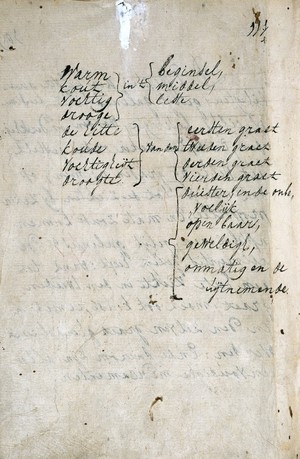 Warm
kout
vochtig
drooge
in't
beginsel,
middel,
Eeste
de Hitte
koude
vochtigheit
droogte
van den
eersten graet
tweeden graet
derden graet
vierden graet
duister, en de onbe,
openbaar,
geweldige,
onmatig en de
uijtnemende.